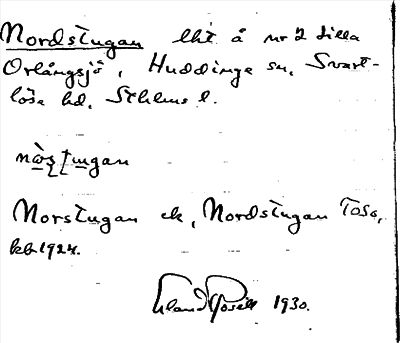 Nordstugan lht å nr 2 Lilla
Orlångsjö, Huddinge sn, Svart-
lösa hd, Sthlms l.
nòṣṭugan
Norstugan ek, Nordstugan Tosa,
kb 1924.
Erland Rosell 1930.